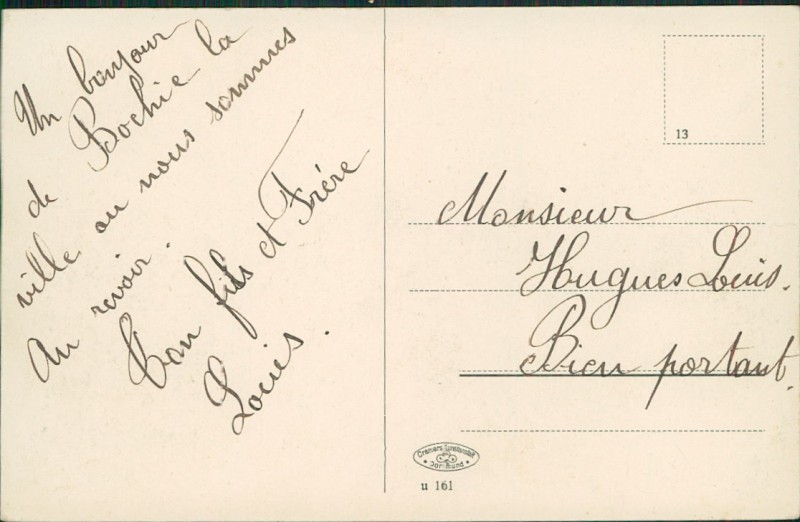 Un bonjour
de Bochie la
ville ou nous sommes
Au revoir.
Ton fils et Frére
Louis.
13
Monsieur
Hugues Louis.
Bien portant.
Cramers Kunstanstalt
Dortmund
u 161